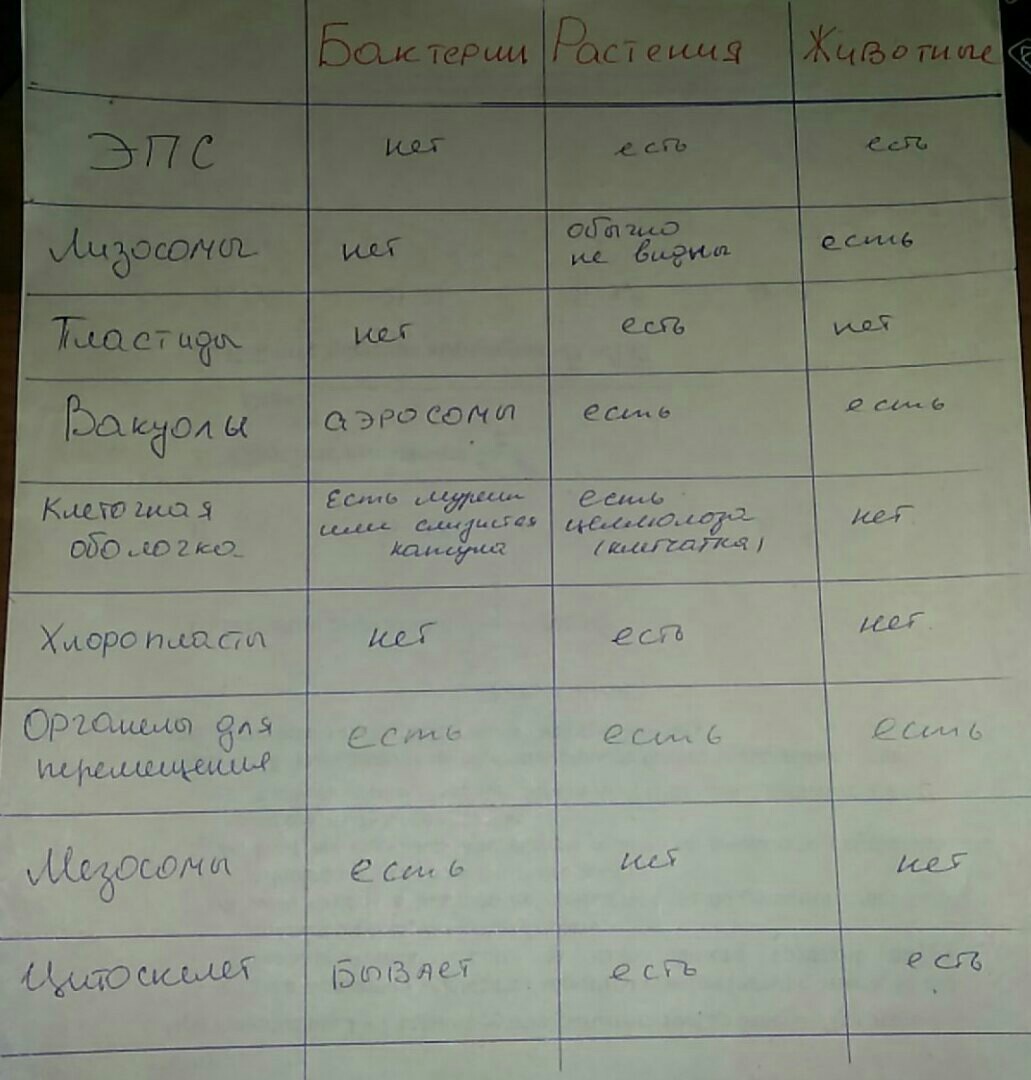 Бактерии Растения Животные
ЭПС нет есть есть
Лизосомы нет обычно не видны есть
Пластиды нет есть нет
Вакуолы аэросомы есть есть
Клеточная оболочка Есть муреин или слизистая капсула есть целлюлоза (клетчатка) нет
Хлоропласты нет есть нет
Органелы для перемещения есть есть есть
Мезосомы есть нет нет
Цитоскелет Бывает есть есть